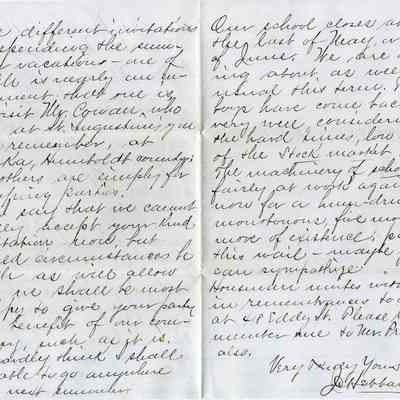 different invitations
spending the sum-
vacations - one of
is nearly an en-
ment, this one is
visit Mr. Cowan, who
at St. Augustine; you
remember, at
Humboldt county;
others are simply for
parties.
say that we cannot
accept your kind
itation now, but
circumstances be
as will allow
we shall be most
to give your party
benefit of our com-
such, as it is.
hardly think I shall
able to go anywhere
next summer.
Our school closes
the last of May, or
of June. We are
ing about as well
usual this term.
boys have come back
very well, considering
the hard times, low
of the Stock market
The machinery of school
fairly at work again
now for a hum-drum
monotonous, five mo
move of existence;
this wail - maybe
can sympathize
Houseman unites with
in remembrances to
at 48 Eddy St. Please
member me to Mr.
also.
Very Truly Yours